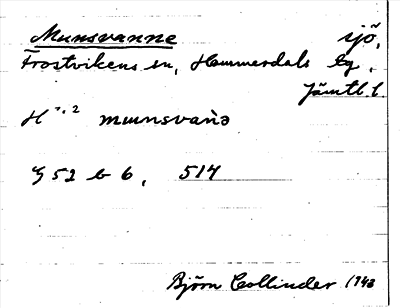 Munsvanne sjö,
Frostvikens sn, Hammerdals tg,
Jämtl. l.
H 1,2 mumsvanə
§ 52 b 6, 514
Björn Collinder 1943